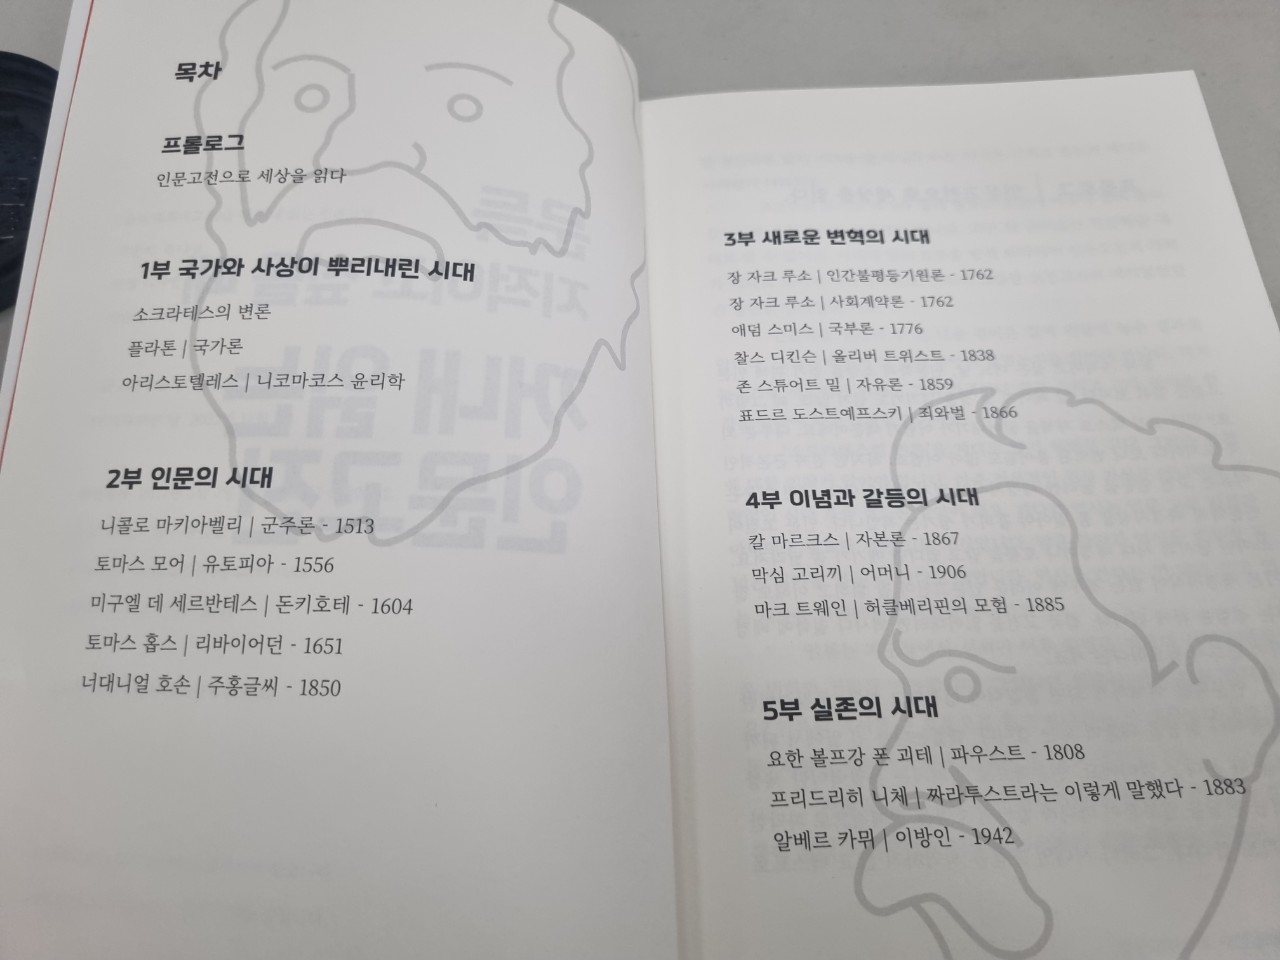 목차
프롤로그
인문고전으로 세상을 읽다
1부 국가와 사상이 뿌리내린 시대
소크라테스의 변론
플라톤 | 국가론
아리스토텔레스 | 니코마코스 윤리학
2부 인문의 시대
니콜로 마키아벨리 | 군주론 - 1513
토마스 모어 | 유토피아 - 1556
미구엘 데 세르반테스 | 돈키호테 - 1604
토마스 홉스 | 리바이어던 - 1651
너대니얼 호손 | 주홍글씨 - 1850
3부 새로운 변혁의 시대
장 자크 루소 | 인간불평등기원론 - 1762
장 자크 루소 | 사회계약론 - 1762
애덤 스미스 | 국부론 - 1776
찰스 디킨슨 | 올리버 트위스트 - 1838
존 스튜어트 밀 | 자유론 - 1859
표드르 도스트예프스키 | 죄와벌 - 1866
4부 이념과 갈등의 시대
칼 마르크스 | 자본론 - 1867
막심 고리끼 | 어머니 - 1906
마크 트웨인 | 허클베리핀의 모험 - 1885
5부 실존의 시대
요한 볼프강 폰 괴테 | 파우스트 - 1808
프리드리히 니체 | 짜라투스트라는 이렇게 말했다 - 1883
알베르 카뮈 | 이방인 - 1942